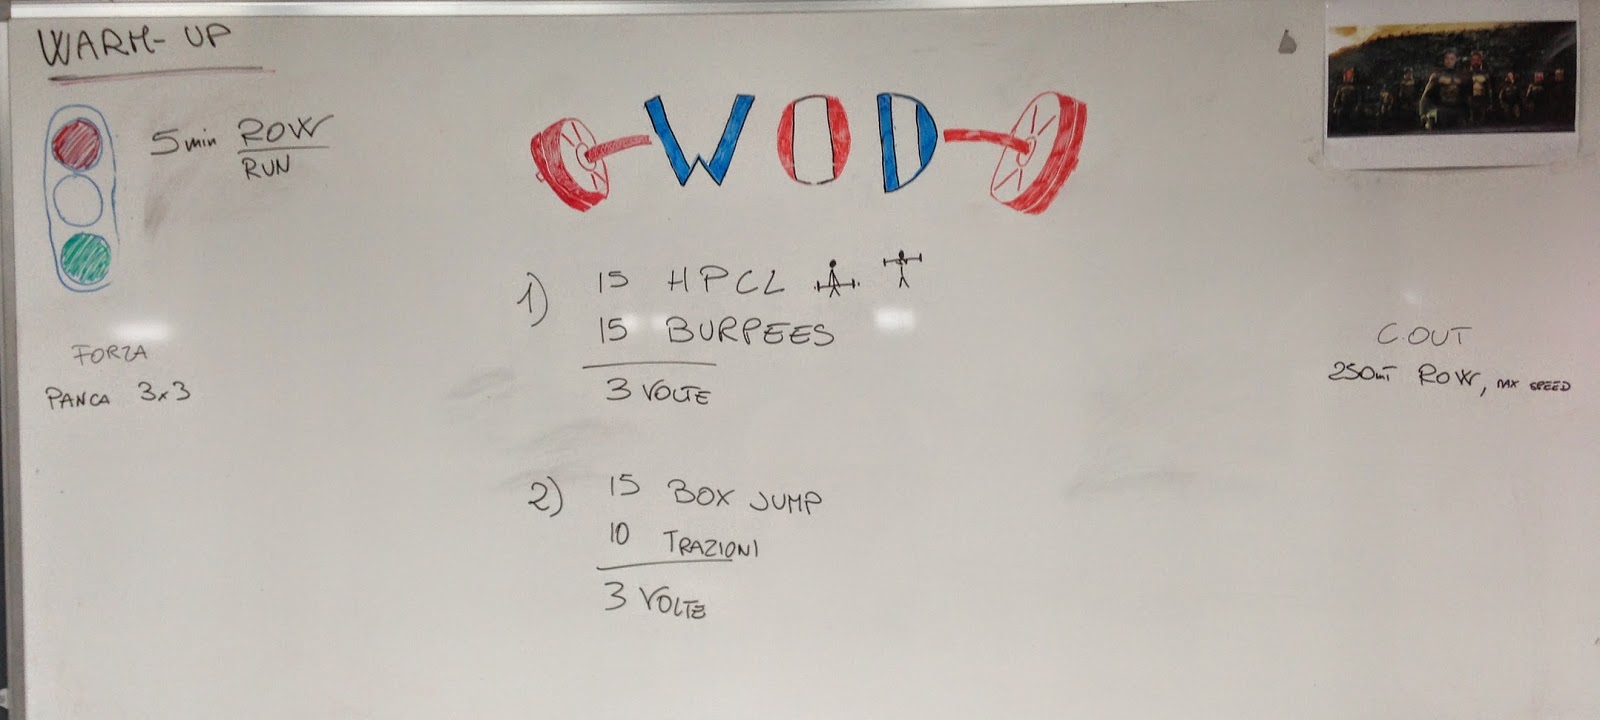 WARM-UP
5 min ROW
RUN
FORZA
PANCA 3x3
WOD
1) 15 HPCL
15 BURPEES
3 VOLTE
2) 15 BOX JUMP
10 TRAZIONI
3 VOLTE
C.OUT
250mT ROW, MAX SPEED